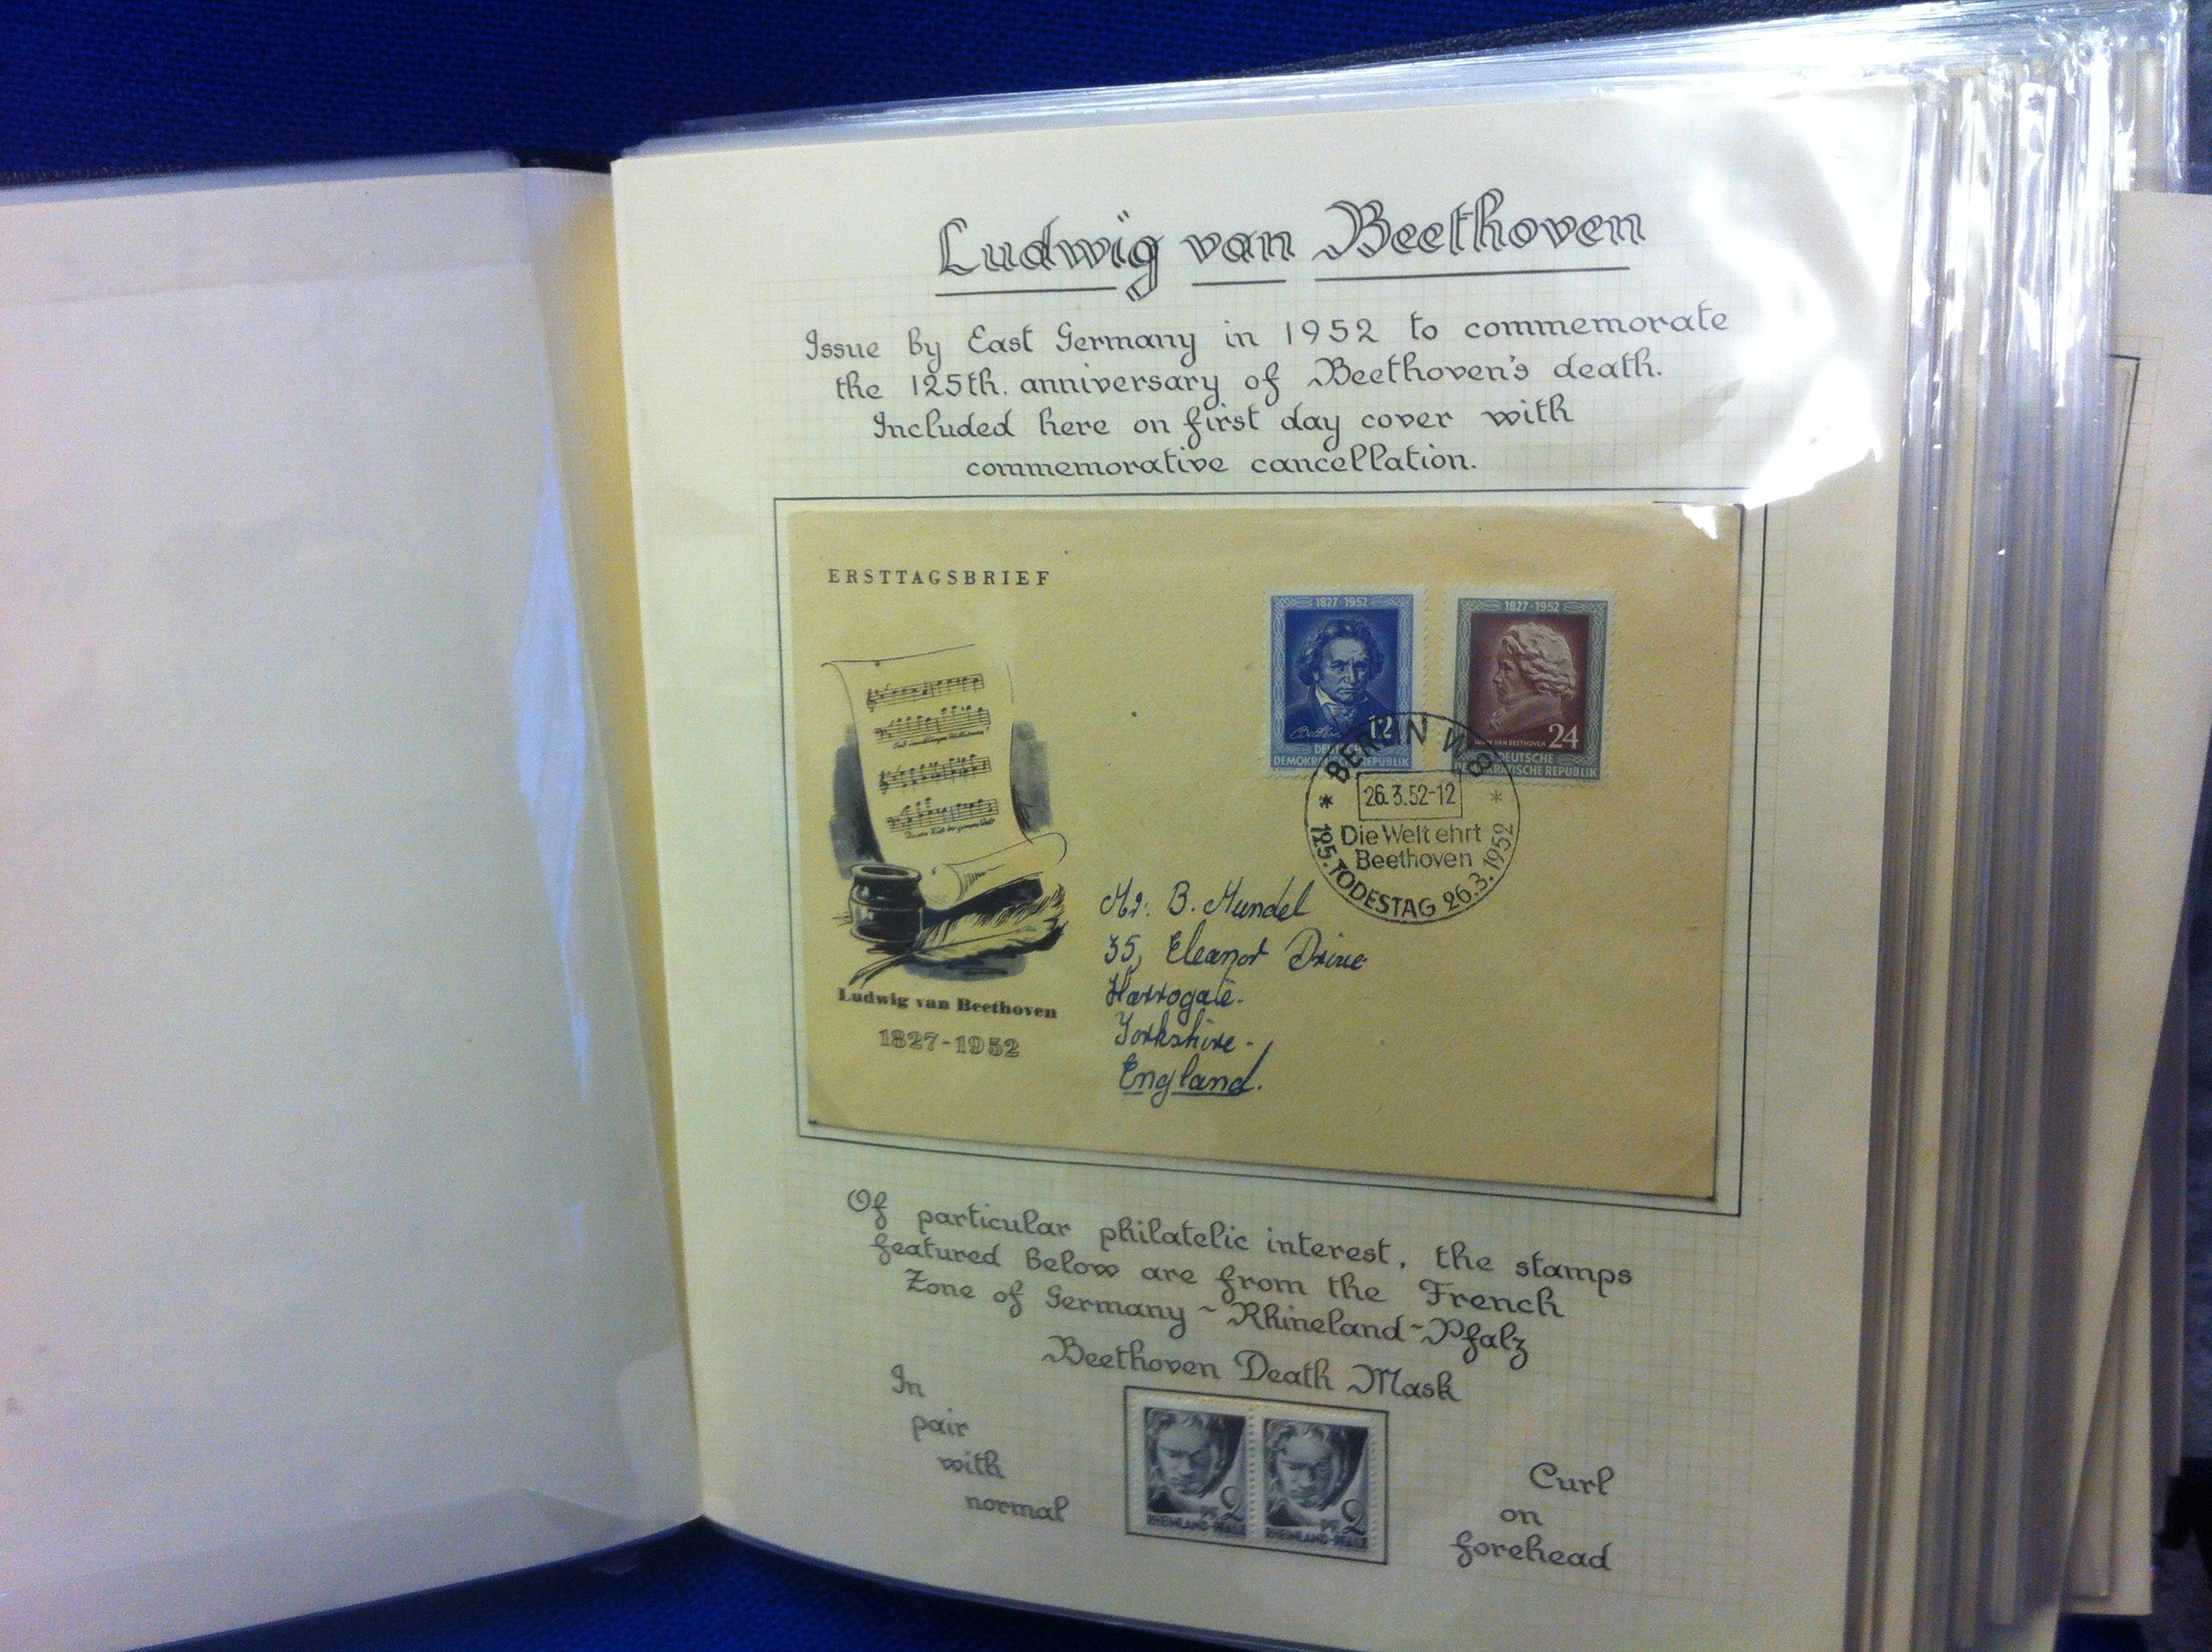 Ludwig van Beethoven
Issue by East Germany in 1952 to commemorate
the 125th. anniversary of Beethoven's death.
Included here on first day cover with
commemorative cancellation.
ERSTTAGSBRIEF
1827-1952
12
DEUTSCHE
DEMOKRATISCHE REPUBLIK
1827-1952
LUDWIG VAN BEETHOVEN 24
DEUTSCHE
DEMOKRATISCHE REPUBLIK
BERLIN W
26.3.52-12
Die Welt ehrt
Beethoven
125. TODESTAG 26.3.1952
Mr. B. Mundel
35, Eleanor Drive
Harrogate.
Yorkshire -
England.
Ludwig van Beethoven
1827-1952
Of particular philatelic interest, the stamps
featured below are from the French
Zone of Germany ~ Rhineland~Pfalz
Beethoven Death Mask
In
pair
with
normal
PF. 2
RHEINLAND-PFALZ
PF. 2
RHEINLAND-PFALZ
Curl
on
forehead